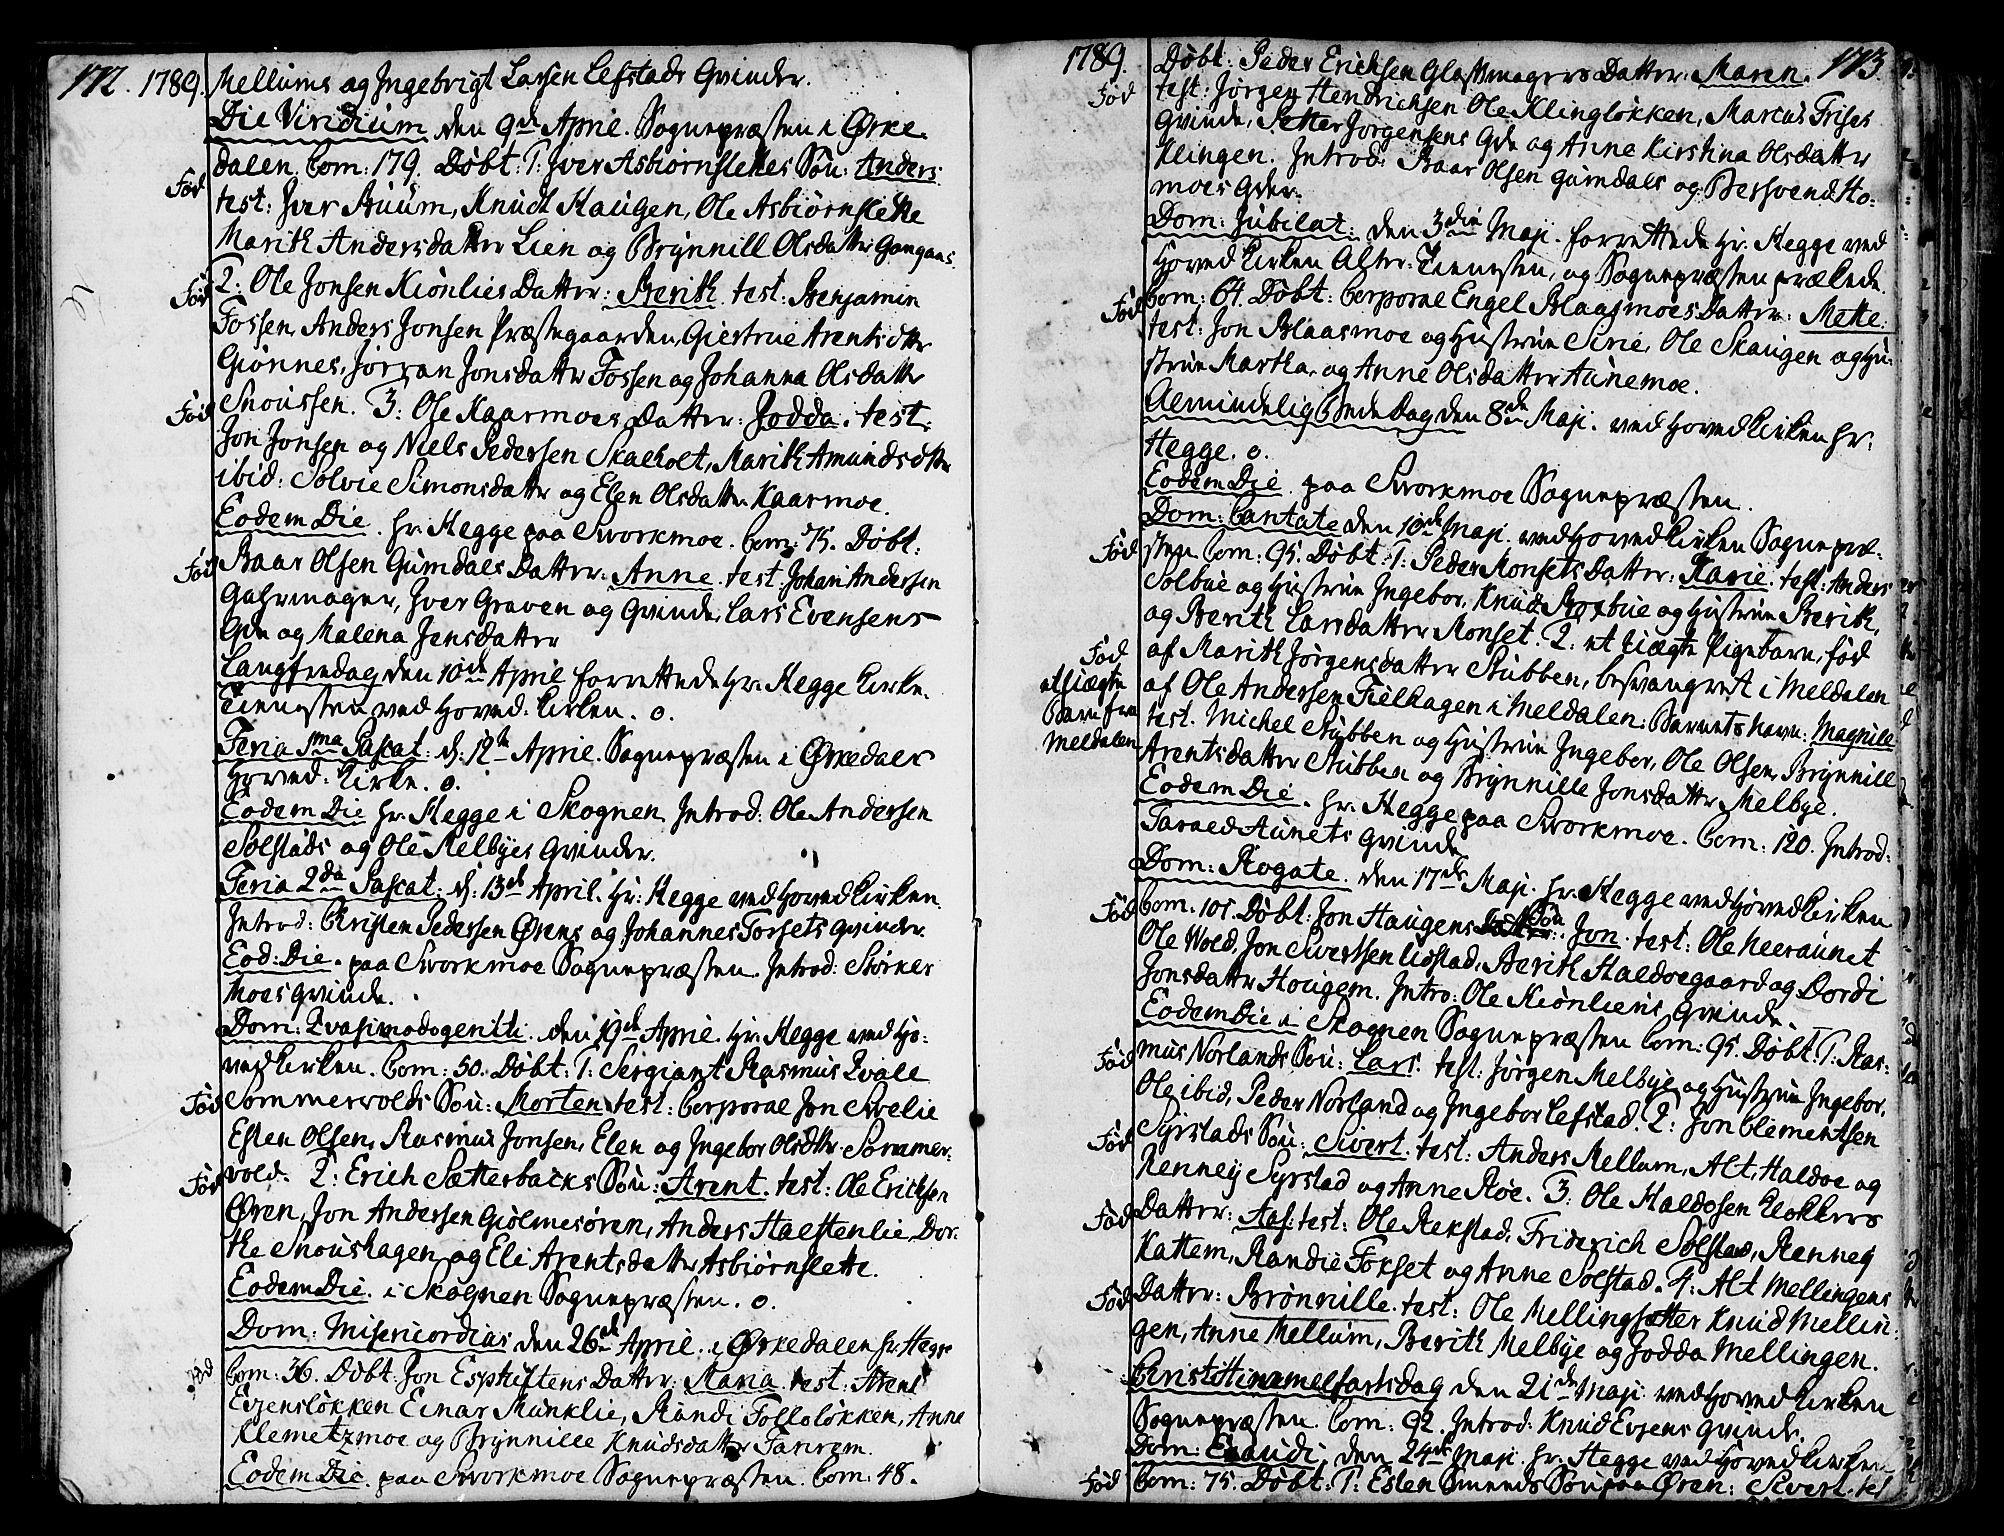 172. 1789. Mellums og Ingebrigt Larsen Lefstads Qvinder.
Die Viridium den 9de April. Sognepræsten i Ørke-
dalen. Com: 179. Døbt: 1: Iver Asbiørnslettes Søn: Anders.
Fød
test: Iver Buum, Knudt Haugen, Ole Asbiørnslette
Marith Andersdatter Lien og Brynnill Olsdatter Gangaas.
Fød 2: Ole Jonsen Kiönlies Datter: Berith. test: Benjamin
Fossen Anders Jonsen Præstegaarden, Giertrue Arentsdtr
Giønnes, Jørran Jonsdatter Fossen og Johanna Olsdatter
Fød Snoussen. 3: Ole Kaarmoes Datter: Jodda. test:
Jon Jonsen og Niels Pedersen Skaeholt, Marith Amundsdttr
ibid: Solvie Simonsdatter og Elen Olsdatter Kaarmoe.
Eodem Die. hr. Hegge paa Svorkmoe. Com: 75. Døbt:
Fød Baar Olsen Gumdals Datter. Anne. test: Johan Andersen
Gahrmager, Iver Graven og Qvinde, Lars Evensens
Qde og Malena Jensdatter
Langfredag den 10de April forrettede Hr: Hegge Kirke-
Tienesten ved Hoved-Kirken. o.
Feria 1ma Pascat: d. 12te April. Sognepræsten i Ørkedals
Hoved-Kirke. o.
Eodem Die hr. Hegge i Skognen Introd: Ole Andersen
Solstads og Ole Melbyes Qvinder.
Feria 2da Pascat: d. 13de April. Hr: Hegge ved Hovedkirken.
Introd: Christen Pedersen Ørens og Johannes Torsets Qvinder.
Eod: Die. paa Svorkmoe Sognepræsten. Introd: Størker
Moes Qvinde.
Dom: Qvasimodogeniti. den 19de April. Hr: Hegge ved Ho-
vedkirken. Com: 50. Døbt: 1: Sergiant Rasmus Qvale
Fød Sommervolds Søn: Morten. test: Corporal Jon Svelie
Esten Olsen, Rasmus Jonsen, Elen og Ingebor Olsdtr. Sommer-
Fød vold. 2: Erich Sætterbacks Søn: Arent. test: Ole Erichsen
Øren, Jon Andersen Giølmesøren, Anders Haestenlie, Dor-
the Snoushagen og Eli Arentsdatter Asbiørnslette.
Eodem Die. i Skognen Sognepræsten. o.
Dom: Misericordias den 26de April. i Ørkedalen hr. Hegge
Fød Com: 36. Døbt: Jon Esphiftens Datter: Maria. test: Arent
Evjensløkken Einar Munklie, Randi Folloløkken, Anne
Klemetzmoe og Brynnille Knudsdatter Fanrem.
Eodem Die. paa Svorkmoe Sognepræsten. Com: 48.
1789. Døbt: Peder Erichsen Glassmagers Datter: Maren. 173.
Fød test: Jørgen Hendrichsen Ole Klingløkken, Marcus Frises
Qvinde, Petter Jørgensens Qde og Anne Kirstina Olsdatter
Klingen. Introd: Baar Olsen Gumdals og Bersvend Ho-
moes Qder.
Dom: Jubilat: den 3die Maji. forrettede Hr: Hegge ved
Hovedkirken Alter-Tienesten, og Sognepræsten præked.
Fød Com: 64. Døbt: Corporal Engel Blaasmoes Datter: Mette.
test: Jon Blaasmoe og Hustrue Sirie, Ole Skaugen og Hu-
strue Martha, og Anne Olsdatter Aunemoe.
Almindelig Bede Dag den 8de Maji. ved Hovedkirken hr:
Hegge. o.
Eodem Die. paa Svorkmoe Sognepræsten.
Dom: Cantate den 10de Maji. ved Hovedkirken Sognepræ-
Fød sten. Com: 95. Døbt: 1: Peder Monsets Datter: Karie. test: Anders
Solbue og Hustrue Ingebor, Knud Rosbue og Hustrue Berith,
og Berith Larsdatter Monset. 2. et Uægte Pigebarn, fød
Fød
et Uægte
Barn fra
Meldalen
af Marith Jørgensdatter Stubben, besvangret i Meldalen
af Ole Andersen Fielhagen i Meldalen: Barnets navn: Magnill
test. Michel Stubben og Hustrue Ingebor, Ole Olsen, Brynnill
Arentsdatter Stubben og Brynnille Jonsdatter Melbye.
Eodem Die. hr. Hegge paa Svorkmoe. Com: 120. Introd:
Tarved Aunets Qvinde.
Dom: Rogate. den 17de Maji. hr. Hegge ved Hovedkirken
Fød Com: 101. Døbt: Jon Haugens Søn: Jon. test: Ole Neeraunet
Ole Wold, Jon Sivertsen Lidstad, Berith Haldoegaard og Dordi
Jonsdatter Hougem. Intro: Ole Kiönliens Qvinde.
Eodem Die i Skognen Sognepræsten Com: 95. Døbt. 1: Ras-
Fød mus Norlands Søn: Lars. test: Jørgen Melbye og Hustrue Ingebor,
Ole ibid, Peder Norland og Ingebor Lefstad. 2: Jon Clementsen
Fød Syrstads Søn: Sivert. test: Anders Mellum, Alt, Haldoe og
Renney Syrstad og Anne Roe. 3: Ole Haldosen Klokkers
Fød Datter: Aas: test: Ole Rekstad, Friderich Solstad, Renney
Kattem, Randie Fokset og Anne Solstad. 4: Alt Mellingens
Fød Datter: Brönnille. test: Ole Mellingsetter Knud Mellin-
gen, Anne Mellum, Berith Melbye og Jodda Mellingen.
Cristi Himmelfartsdag den 21de Maji. ved Hovedkirken
Sognepræsten. Com: 92. Introd: Knud Evjens Qvinde.
Dom: Exaudi, den 24de Maji. hr. Hegge ved Hovedkirken
Fød Com: 75. Døbt: 1: Esten Smeds Søn paa Øren: Sivert. test